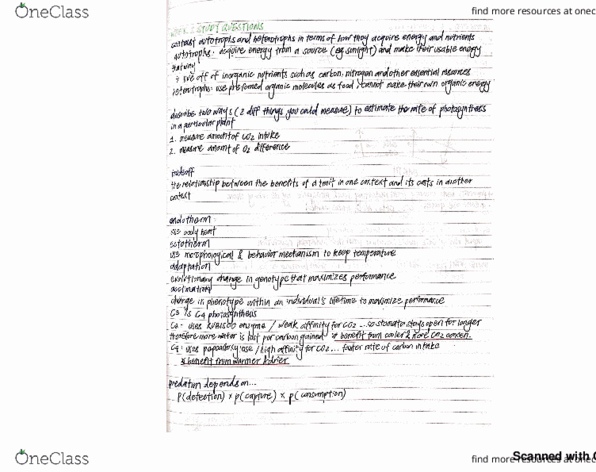 OneClass
find more resources at onec
STUDY QUESTIONS
contrast autotrophs and heterotrophs in terms of how they acquire energy and nutrients
autotrophs: acquire energy from a source (eg sunlight) and make their usable energy
that way
live off of inorganic nutrients such as carbon, nitrogen and other essential resources
heterotrophs: use preformed organic molecules as food / cannot make their own organic energy
describe two ways (2 diff things you could measure) to estimate the rate of photosynthesis
in a particular plant
1. measure amount of CO2 intake
2. measure amount of O2 difference
tradeoff
the relationship between the benefits of a trait in one context and its costs in another
context
endotherm
body heat
ectotherm
use morphological & behavior mechanism to keep temperature
adaptation
evolutionary change in genotype that maximizes performance
acclimation
change in phenotype within an individual's lifetime to maximize performance
C3 vs C4 photosynthesis
C3: uses RUBISCO enzyme / weak affinity for CO2 ... so stomata stays open for longer
therefore more water is lost per carbon gained * benefit from cooler & more CO2
C4: uses / high affinity for CO2 ... faster rate of carbon intake
* benefit from warmer
predation depends on...
P(detection) x P(capture) x P(consumption)
OneClass
find more resources at onec
Scanned with C